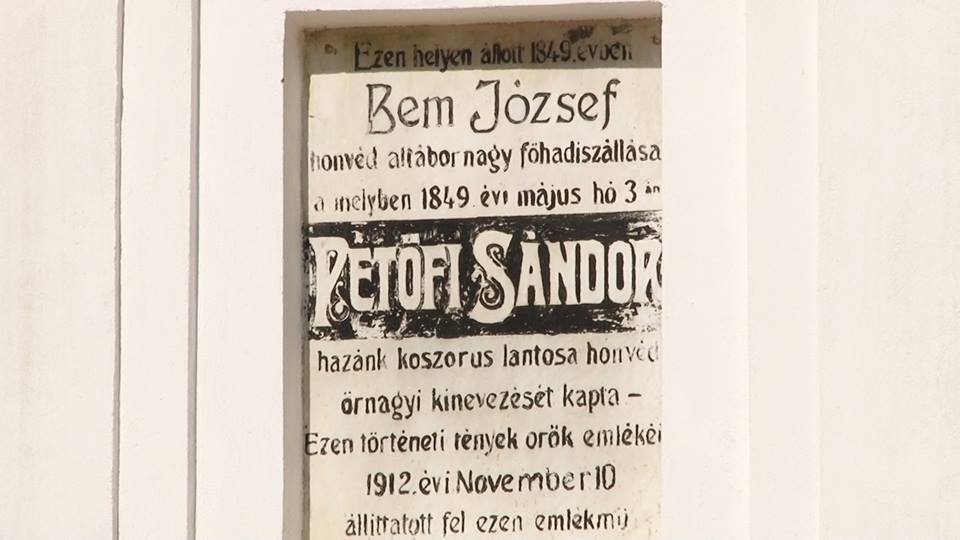 Ezen helyen állott 1849.évben
Bem József
honvéd altábornagy főhadiszállása
a melyben 1849. évi május hó 3 án
PETŐFI SÁNDOR
hazánk koszorus lantosa honvéd
őrnagyi kinevezését kapta –
Ezen történeti tények örök emlékéi
1912. évi November 10
állittatott fel ezen emlékmű